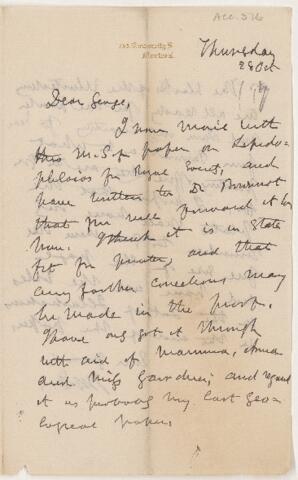 Acc. 576
Montreal.
Thursday
28 Oct
Dear George,
I now mail with
this M.S. of paper on Lepido-
phloios for Royal Society, and
have written to Dr Bourinot
that you will forward it to
him. I think it is in state
fit for printer, and that
any further corrections may
be made in the proof.
I have only got it through
with aid of mamma, Anna
and Miss Gardner, and regard
it as perhaps my last geo-
logical paper.